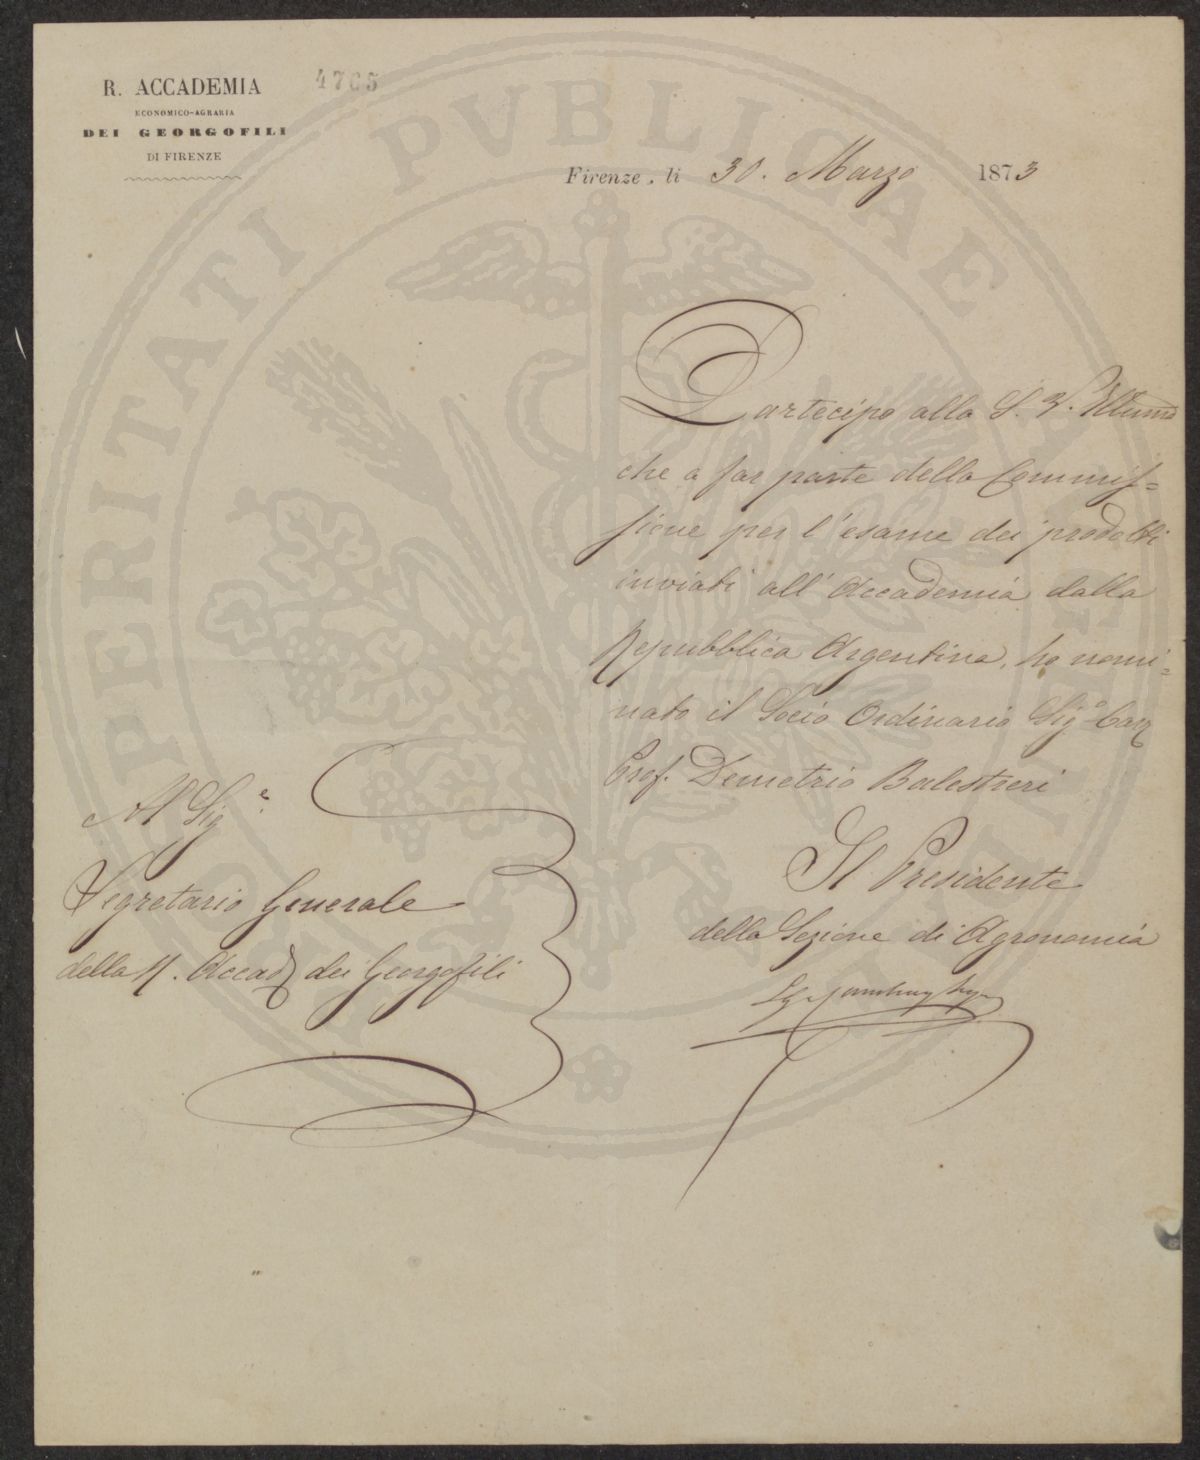 R. ACCADEMIA
ECONOMICO-AGRARIA
DEI GEORGOFILI
DI FIRENZE
4765
Firenze, li 30. Marzo 1873
Partecipo alla S. V. Illuma
che a far parte della Commis=
sione per l'esame dei prodotti
inviati all'Accademia dalla
Repubblica Argentina, ho nomi=
nato il Socio Ordinario Sigo Cav
Prof. Demetrio Balestreri
Il Presidente
della Sezione di Agronomia
Al Sige
Segretario Generale
della R. Accad dei Georgofili
PROSPERITATI PVBLICAE